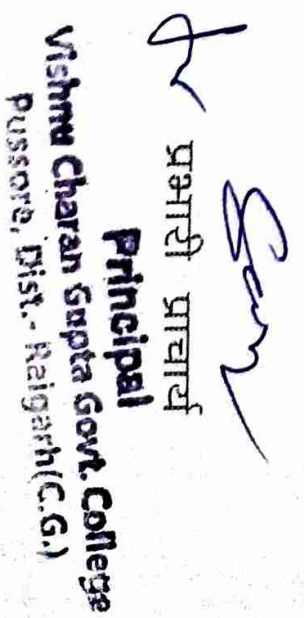 प्रभारी प्राचार्य
Principal
Vishnu Charan Gupta Govt. College
Pussore, Dist.- Raigarh(C.G.)